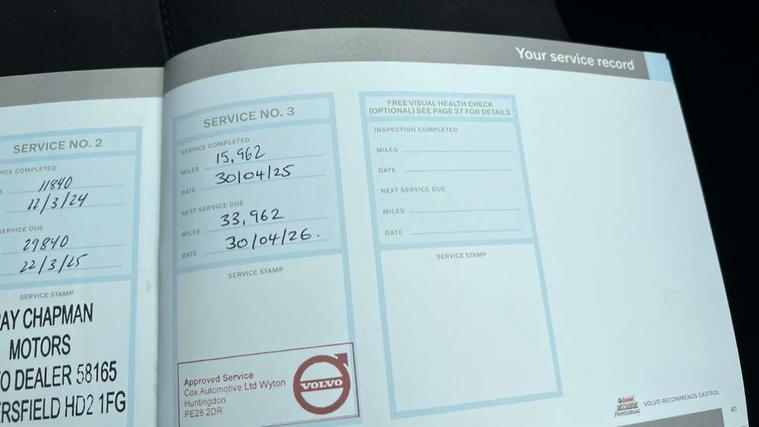 Your service record
SERVICE NO. 2
ICE COMPLETED
11840
22/3/24
SERVICE DUE
29840
22/3/25
SERVICE STAMP
AY CHAPMAN
MOTORS
O DEALER 58165
ERSFIELD HD2 1FG
SERVICE NO. 3
SERVICE COMPLETED
MILES 15,962
DATE 30/04/25
NEXT SERVICE DUE
MILES 33,962
DATE 30/04/26.
SERVICE STAMP
Approved Service
Cox Automotive Ltd Wyton
Huntingdon
PE28 2DR
VOLVO
FREE VISUAL HEALTH CHECK
(OPTIONAL) SEE PAGE 37 FOR DETAILS
INSPECTION COMPLETED
MILES
DATE
NEXT SERVICE DUE
MILES
DATE
SERVICE STAMP
Castrol
VOLVO RECOMMENDS CASTROL
41